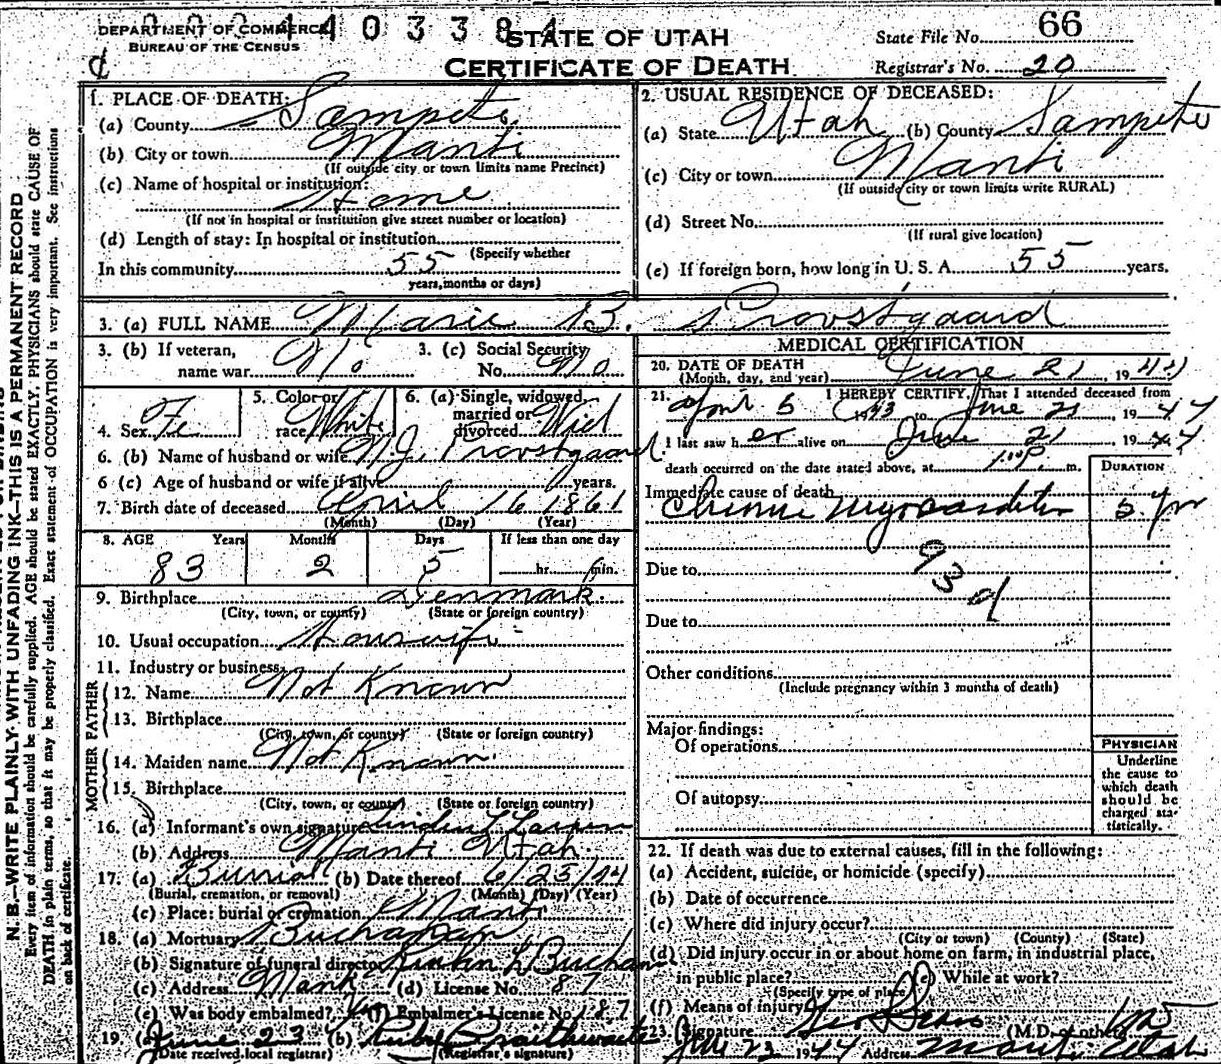 DEPARTMENT OF COMMERCE
BUREAU OF THE CENSUS
STATE OF UTAH
CERTIFICATE OF DEATH
State File No. 66
Registrar's No. 20
1. PLACE OF DEATH:
(a) County Sanpete
(b) City or town Manti
(If outside city or town limits name Precinct)
(c) Name of hospital or institution:
Home
(If not in hospital or institution give street number or location)
(d) Length of stay: In hospital or institution
(Specify whether
In this community 55
years, months or days)
2. USUAL RESIDENCE OF DECEASED:
(a) State Utah (b) County Sanpete
(c) City or town Manti
(If outside city or town limits write RURAL)
(d) Street No.
(If rural give location)
(e) If foreign born, how long in U. S. A. 55 years.
3. (a) FULL NAME Marie B. Provstgaard
3. (b) If veteran, name war No
3. (c) Social Security No. No
4. Sex Fe
5. Color or race White
6. (a) Single, widowed, married or divorced Wid
6. (b) Name of husband or wife N.J. Provstgaard
6 (c) Age of husband or wife if alive years.
7. Birth date of deceased April 16 1861
(Month) (Day) (Year)
8. AGE Years Months Days If less than one day
83 2 5 hr. min.
9. Birthplace Denmark
(City, town, or county) (State or foreign country)
10. Usual occupation Housewife
11. Industry or business
FATHER
12. Name Not Known
13. Birthplace
(City, town, or county) (State or foreign country)
MOTHER
14. Maiden name Not Known
15. Birthplace
(City, town, or county) (State or foreign country)
16. (a) Informant's own signature
(b) Address Manti Utah.
17. (a) Burrial (b) Date thereof 6/23/44
(Burial, cremation, or removal) (Month) (Day) (Year)
(c) Place: burial or cremation Manti
18. (a) Mortuary Buchanan
(b) Signature of funeral director
(c) Address Manti (d) License No. 87
(e) Was body embalmed? Yes (f) Embalmer's License No. 187
19. (a) June 23 (b) Ruby Braithwaite
(Date received local registrar) (Registrar's signature)
MEDICAL CERTIFICATION
20. DATE OF DEATH June 21, 1944
(Month, day, and year)
21. I HEREBY CERTIFY, That I attended deceased from
April 5 1943 to June 21 1944
I last saw her alive on June 21 1944
death occurred on the date stated above, at 1:00P. m.
DURATION
Immediate cause of death
Chronic Myocarditis 5 yrs
93d
Due to
Due to
Other conditions
(Include pregnancy within 3 months of death)
Major findings:
Of operations
Of autopsy
PHYSICIAN
Underline
the cause to
which death
should be
charged sta-
tistically.
22. If death was due to external causes, fill in the following:
(a) Accident, suicide, or homicide (specify)
(b) Date of occurrence
(c) Where did injury occur?
(City or town) (County) (State)
(d) Did injury occur in or about home on farm, in industrial place,
in public place? (e) While at work?
(Specify type of place)
(f) Means of injury
23. Signature (M.D. or other) MD
23 1944 Address Manti Utah
N. B.—WRITE PLAINLY WITH UNFADING INK—THIS IS A PERMANENT RECORD
Every item of information should be carefully supplied. AGE should be stated EXACTLY, PHYSICIANS should state CAUSE OF
DEATH in plain terms, so that it may be properly classified. Exact statement of OCCUPATION is very important. See instructions
on back of certificate.